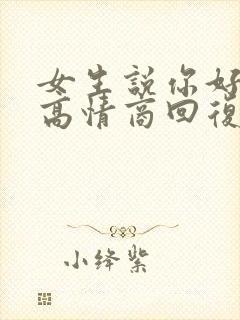 女生說你好
高情商回復
小绛紫